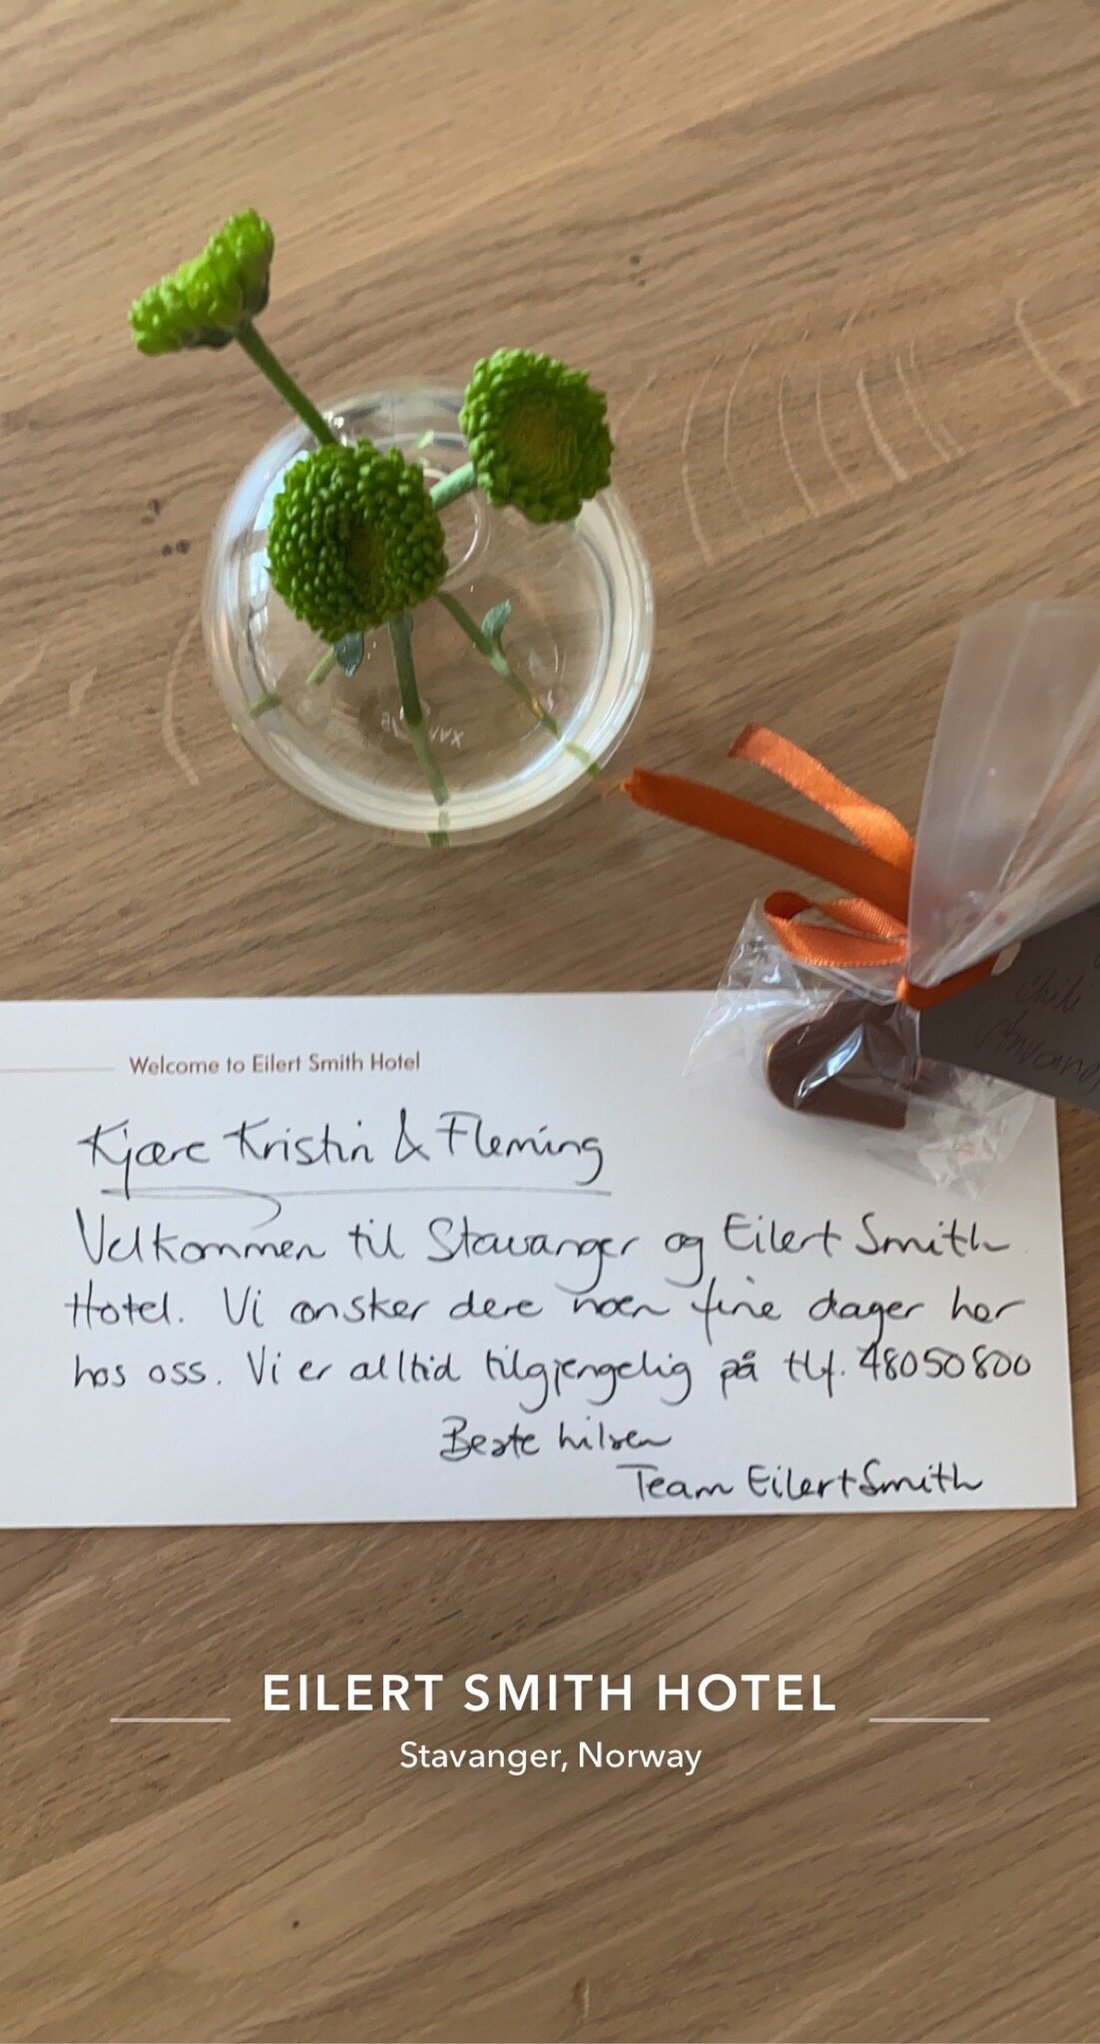 Welcome to Eilert Smith Hotel
Kjære Kristin & Fleming
Velkommen til Stavanger og Eilert Smith
Hotel. Vi ønsker dere noen fine dager her
hos oss. Vi er alltid tilgjengelig på tlf. 48050800
Beste hilsen
Team Eilert Smith
EILERT SMITH HOTEL
Stavanger, Norway